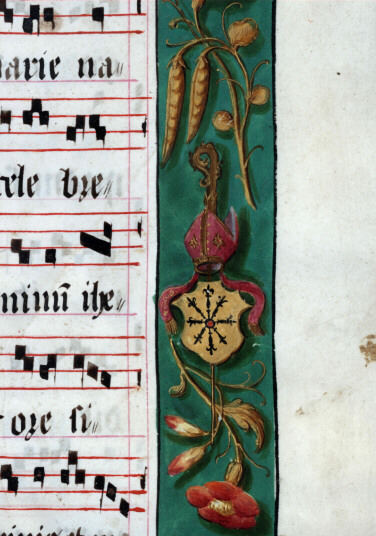 arie na
cele bre
minū ihe
ore si